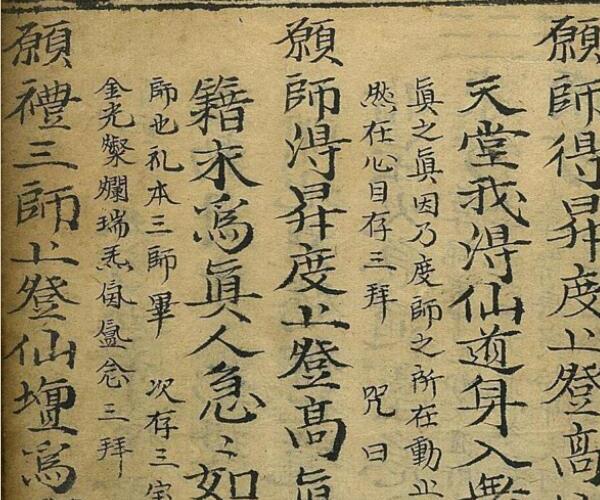 願師得昇度上登高
天堂我得仙道身入無
眞之眞因乃度師之所在動止
然在心目存三拜 咒曰
願師得昇度上登高眞
籍求爲眞人急〻如
師也礼本三師畢 次存三宝
金光燦爛瑞炁氤氳念三拜
願禮三師上登仙壇爲